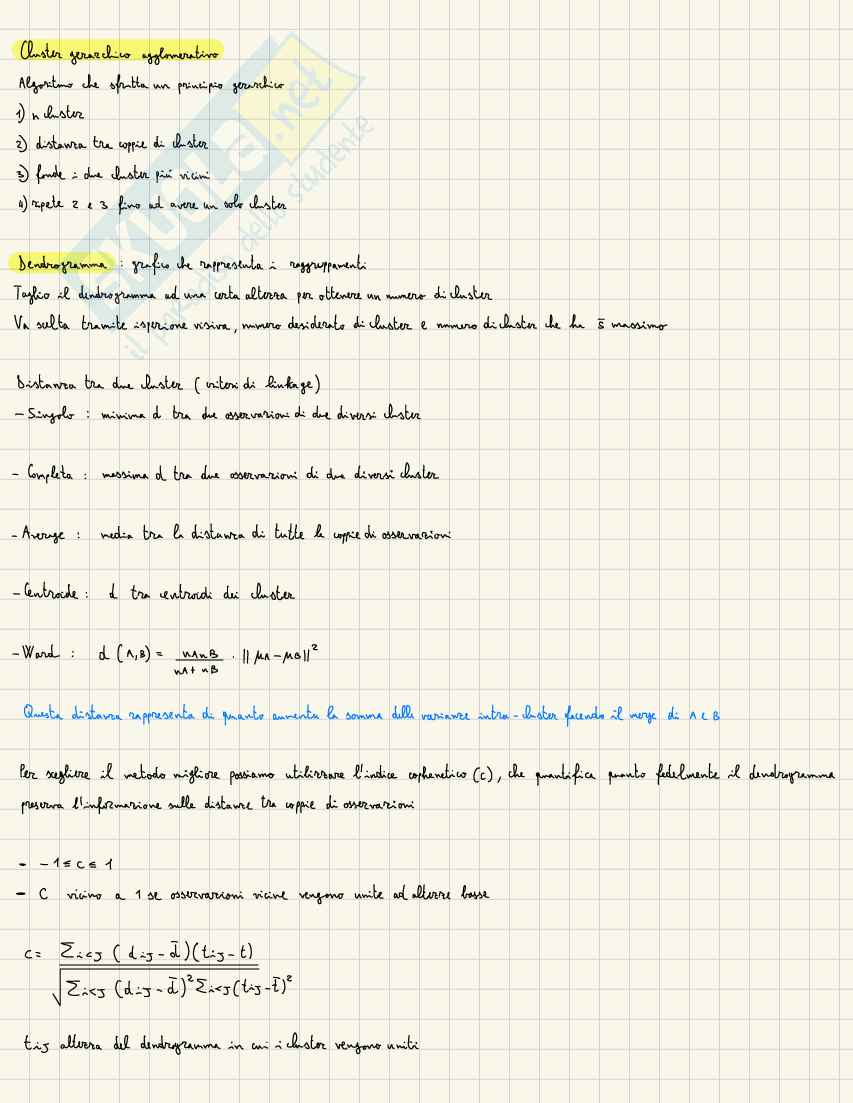 Cluster gerarchico agglomerativo
Algoritmo che sfrutta un principio gerarchico
1) n cluster
2) distanza tra coppie di cluster
3) fonde i due cluster più vicini
4) ripete 2 e 3 fino ad avere un solo cluster
Dendrogramma : grafico che rappresenta i raggruppamenti
Taglio il dendrogramma ad una certa altezza per ottenere un numero di cluster
Va scelta tramite ispezione visiva, numero desiderato di cluster e numero di cluster che ha s̄ massimo
Distanza tra due cluster ( criteri di linkage )
- Singolo : minima d tra due osservazioni di due diversi cluster
- Completa : massima d tra due osservazioni di due diversi cluster
- Average : media tra la distanza di tutte le coppie di osservazioni
- Centroide : d tra centroidi dei cluster
- Ward : d (A,B) = nAnB / nA + nB · || μA - μB ||²
Questa distanza rappresenta di quanto aumenta la somma delle varianze intra-cluster facendo il merge di A e B
Per scegliere il metodo migliore possiamo utilizzare l'indice cophenetico (c), che quantifica quanto fedelmente il dendrogramma
preserva l'informazione sulle distanze tra coppie di osservazioni
- -1 ≤ c ≤ 1
- C vicino a 1 se osservazioni vicine vengono unite ad altezze basse
c = Σi<j ( dij - d̄ ) ( tij - t ) / √ Σi<j ( dij - d̄ )² Σi<j ( tij - t̄ )²
tij altezza del dendrogramma in cui i cluster vengono uniti
SKUOLA.net
il paradiso dello studente